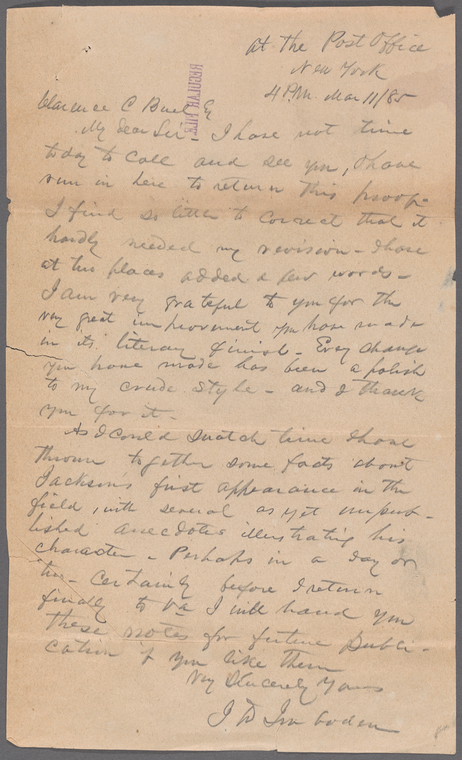 at the Post Office
New York
4 P.M. Mar 11/85
Clarence C Buel Esq
My Dear Sir - I have not time
today to call and see you, I have
run in here to return this proof -
I find so little to correct that it
hardly needed my revision - I have
at two places added a few words -
I am very grateful to you for the
very great improvement you have made
in its literary finish - Every change
you have made has been a polish
to my crude style - and I thank
you for it -
As I could snatch time I have
thrown together some facts about
Jackson's first appearance in the
field, with several as yet unpub-
lished anecdotes illustrating his
character - Perhaps in a day or
two - certainly before I return
finally to Va I will hand you
these notes for future Publi-
cation if you like them
Very Sincerely Yours
J D Imboden